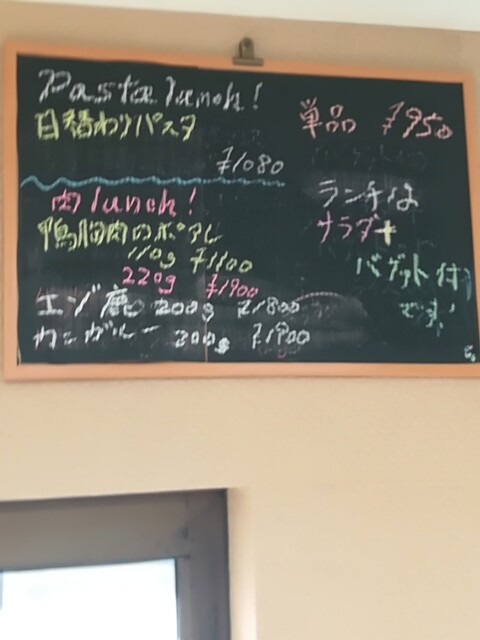 Pasta lunch!
日替わりパスタ
¥1080
肉 lunch!
鴨胸肉のポアレ
110g ¥1100
220g ¥1900
エゾ鹿 200g ¥1800
カンガルー 200g ¥1900
単品 ¥950
ランチは
サラダ+
バゲット付
です!